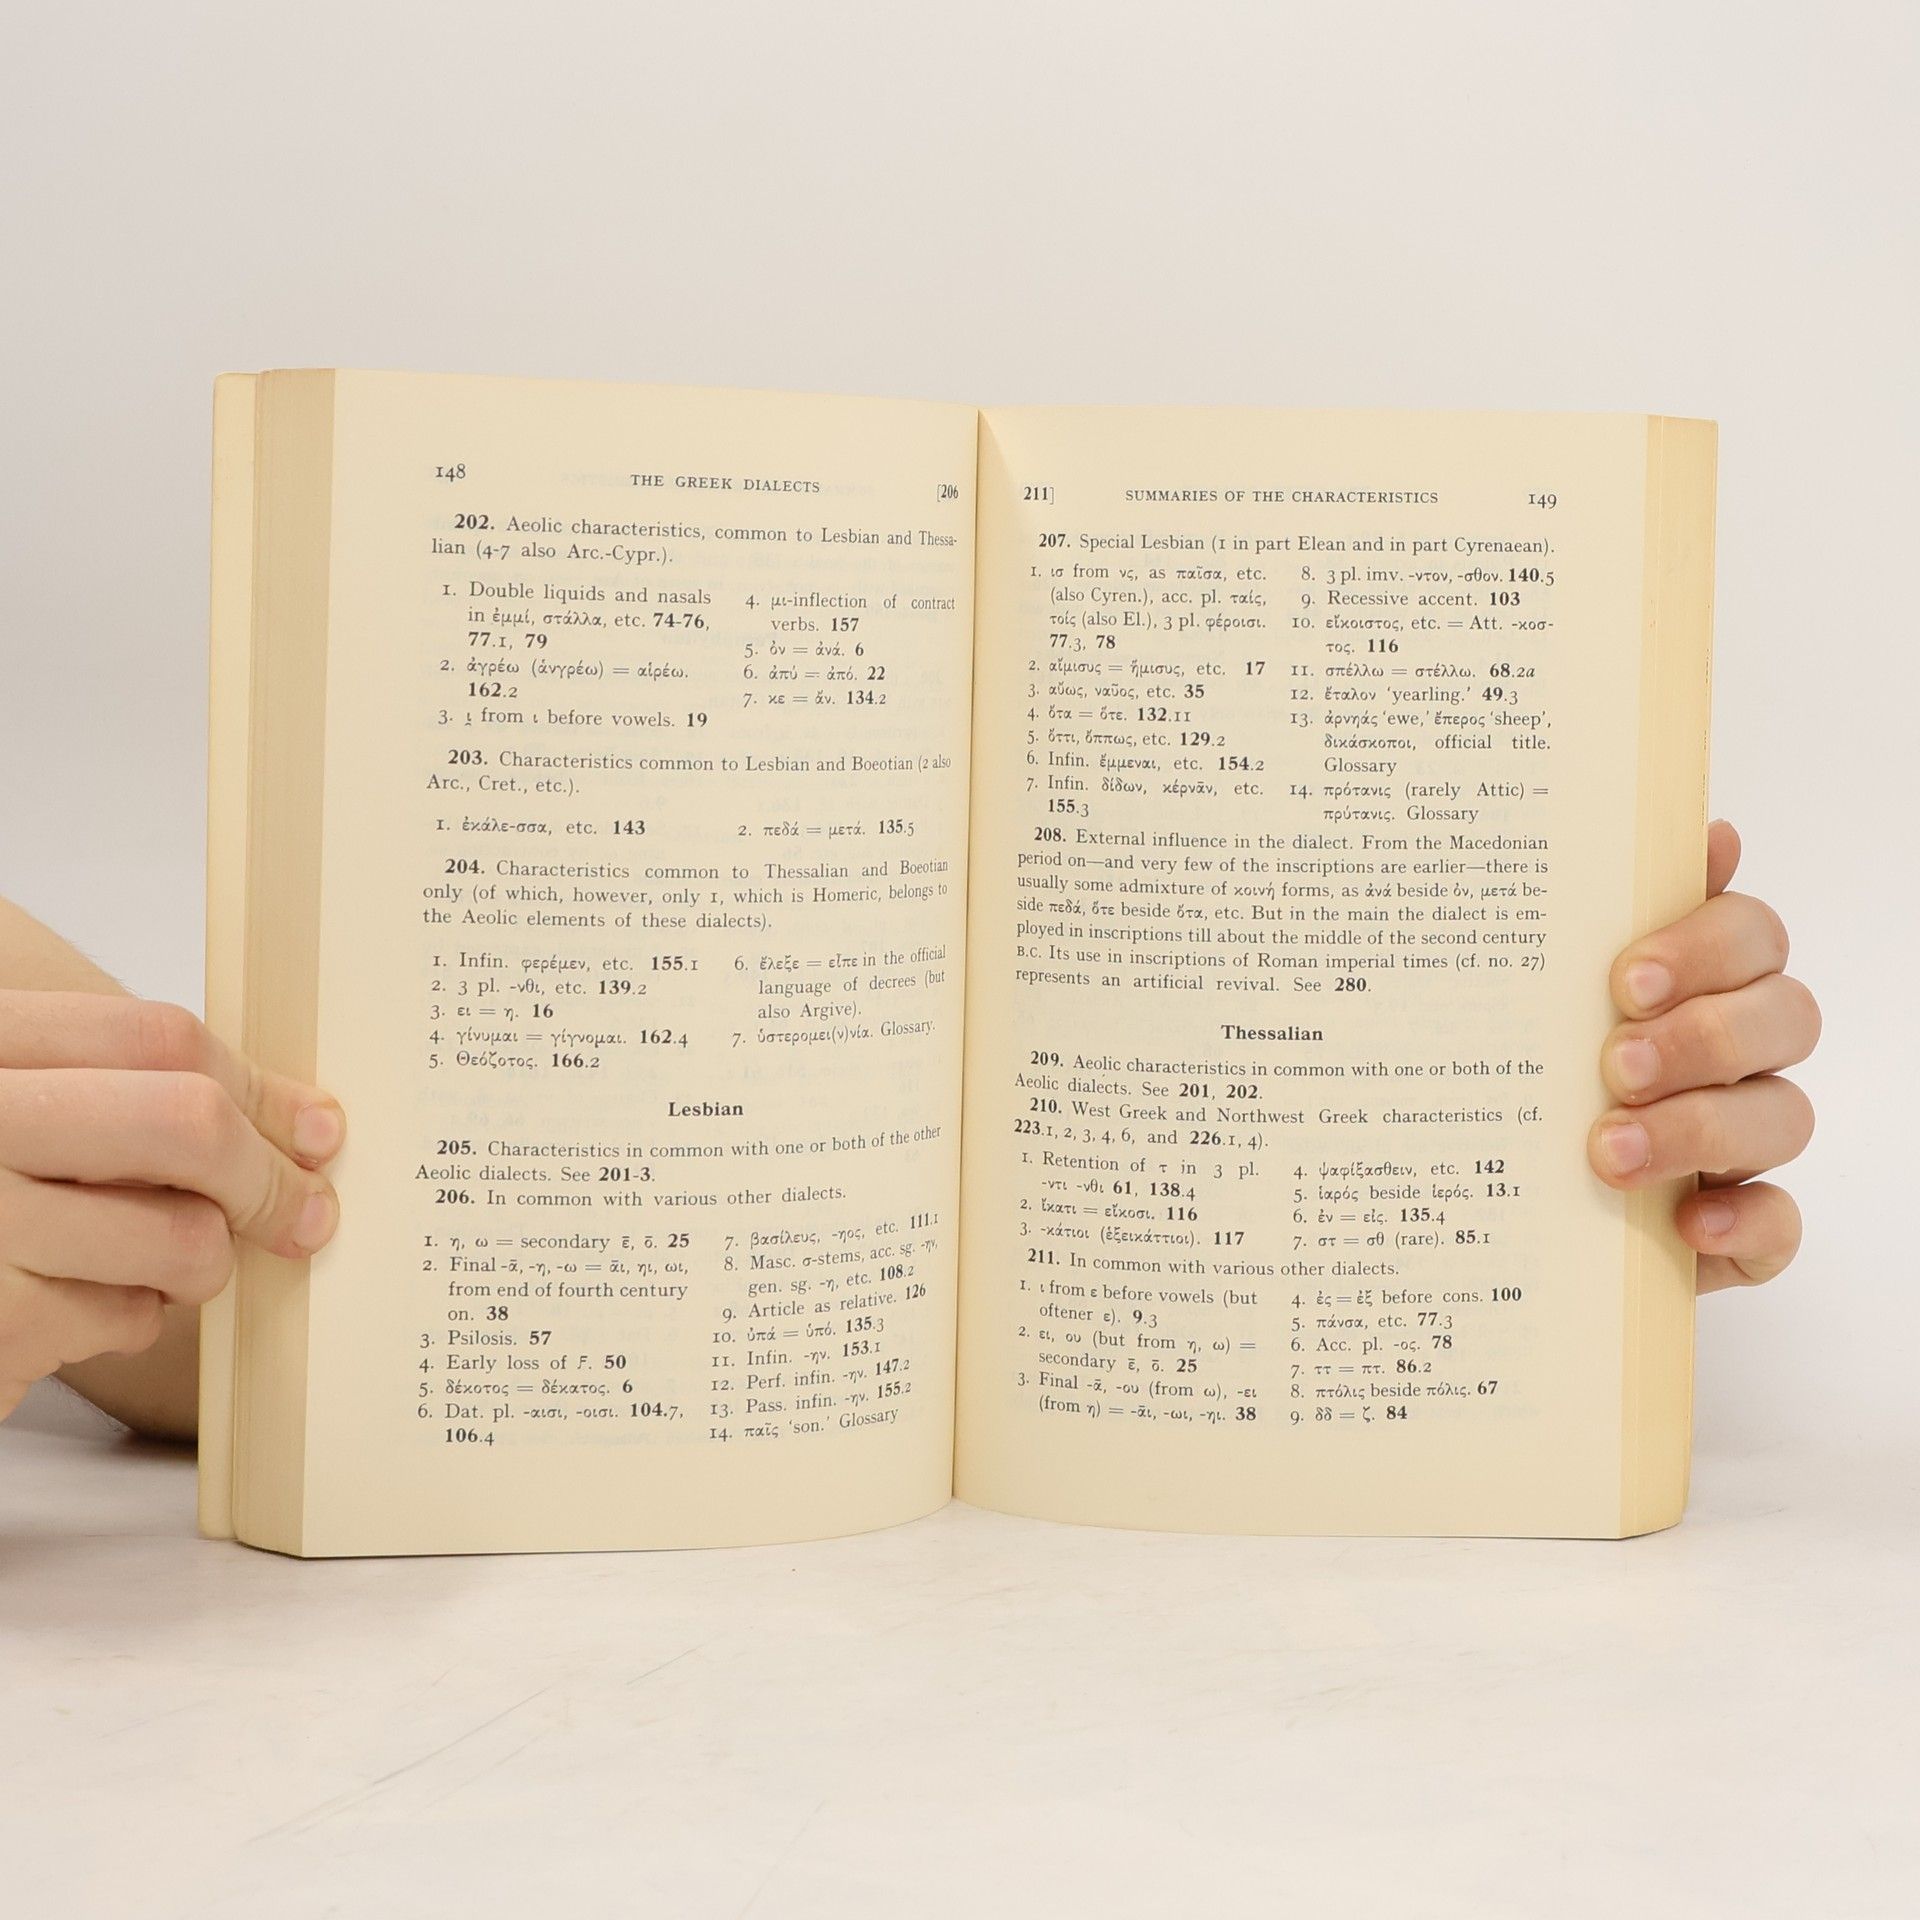 148
THE GREEK DIALECTS
[206
202. Aeolic characteristics, common to Lesbian and Thessa-
lian (4-7 also Arc.-Cypr.).
1. Double liquids and nasals
in ἐμμί, στάλλα, etc. 74-76,
77.1, 79
2. ἀγρέω (ἀνγρέω) = αἱρέω.
162.2
3. ι̯ from ι before vowels. 19
4. μι-inflection of contract
verbs. 157
5. ὀν = ἀνά. 6
6. ἀπύ = ἀπό. 22
7. κε = ἄν. 134.2
203. Characteristics common to Lesbian and Boeotian (2 also
Arc., Cret., etc.).
1. ἐκάλε-σσα, etc. 143
2. πεδά = μετά. 135.5
204. Characteristics common to Thessalian and Boeotian
only (of which, however, only 1, which is Homeric, belongs to
the Aeolic elements of these dialects).
1. Infin. φερέμεν, etc. 155.1
2. 3 pl. -νθι, etc. 139.2
3. ει = η. 16
4. γίνυμαι = γίγνομαι. 162.4
5. Θεόζοτος. 166.2
6. ἔλεξε = εἶπε in the official
language of decrees (but
also Argive).
7. ὑστερομει(ν)νία. Glossary.
Lesbian
205. Characteristics in common with one or both of the other
Aeolic dialects. See 201-3.
206. In common with various other dialects.
1. η, ω = secondary ε̄, ο̄. 25
2. Final -ᾱ, -η, -ω = ᾱι, ηι, ωι,
from end of fourth century
on. 38
3. Psilosis. 57
4. Early loss of ϝ. 50
5. δέκοτος = δέκατος. 6
6. Dat. pl. -αισι, -οισι. 104.7,
106.4
7. βασίλευς, -ηος, etc. 111.1
8. Masc. σ-stems, acc. sg. -ην,
gen. sg. -η, etc. 108.2
9. Article as relative. 126
10. ὑπά = ὑπό. 135.3
11. Infin. -ην. 153.1
12. Perf. infin. -ην. 147.2
13. Pass. infin. -ην. 155.2
14. παῖς 'son.' Glossary
211]
SUMMARIES OF THE CHARACTERISTICS
149
207. Special Lesbian (1 in part Elean and in part Cyrenaean).
1. ισ from νς, as παῖσα, etc.
(also Cyren.), acc. pl. ταίς,
τοίς (also El.), 3 pl. φέροισι.
77.3, 78
2. αἴμισυς = ἥμισυς, etc. 17
3. αὔως, ναῦος, etc. 35
4. ὄτα = ὅτε. 132.11
5. ὄττι, ὄππως, etc. 129.2
6. Infin. ἔμμεναι, etc. 154.2
7. Infin. δίδων, κέρνᾱν, etc.
155.3
8. 3 pl. imv. -ντον, -σθον. 140.5
9. Recessive accent. 103
10. εἴκοιστος, etc. = Att. -κοσ-
τος. 116
11. σπέλλω = στέλλω. 68.2a
12. ἔταλον 'yearling.' 49.3
13. ἀρνηάς 'ewe,' ἔπερος 'sheep',
δικάσκοποι, official title.
Glossary
14. πρότανις (rarely Attic) =
πρύτανις. Glossary
208. External influence in the dialect. From the Macedonian
period on—and very few of the inscriptions are earlier—there is
usually some admixture of κοινή forms, as ἀνά beside ὀν, μετά be-
side πεδά, ὅτε beside ὄτα, etc. But in the main the dialect is em-
ployed in inscriptions till about the middle of the second century
B.C. Its use in inscriptions of Roman imperial times (cf. no. 27)
represents an artificial revival. See 280.
Thessalian
209. Aeolic characteristics in common with one or both of the
Aeolic dialects. See 201, 202.
210. West Greek and Northwest Greek characteristics (cf.
223.1, 2, 3, 4, 6, and 226.1, 4).
1. Retention of τ in 3 pl.
-ντι -νθι 61, 138.4
2. ἴκατι = εἴκοσι. 116
3. -κάτιοι (ἑξεικάττιοι). 117
4. ψαφίξασθειν, etc. 142
5. ἱαρός beside ἱερός. 13.1
6. ἐν = εἰς. 135.4
7. στ = σθ (rare). 85.1
211. In common with various other dialects.
1. ι from ε before vowels (but
oftener ε). 9.3
2. ει, ου (but from η, ω) =
secondary ε̄, ο̄. 25
3. Final -ᾱ, -ου (from ω), -ει
(from η) = -ᾱι, -ωι, -ηι. 38
4. ἐς = ἐξ before cons. 100
5. πάνσα, etc. 77.3
6. Acc. pl. -ος. 78
7. ττ = πτ. 86.2
8. πτόλις beside πόλις. 67
9. δδ = ζ. 84